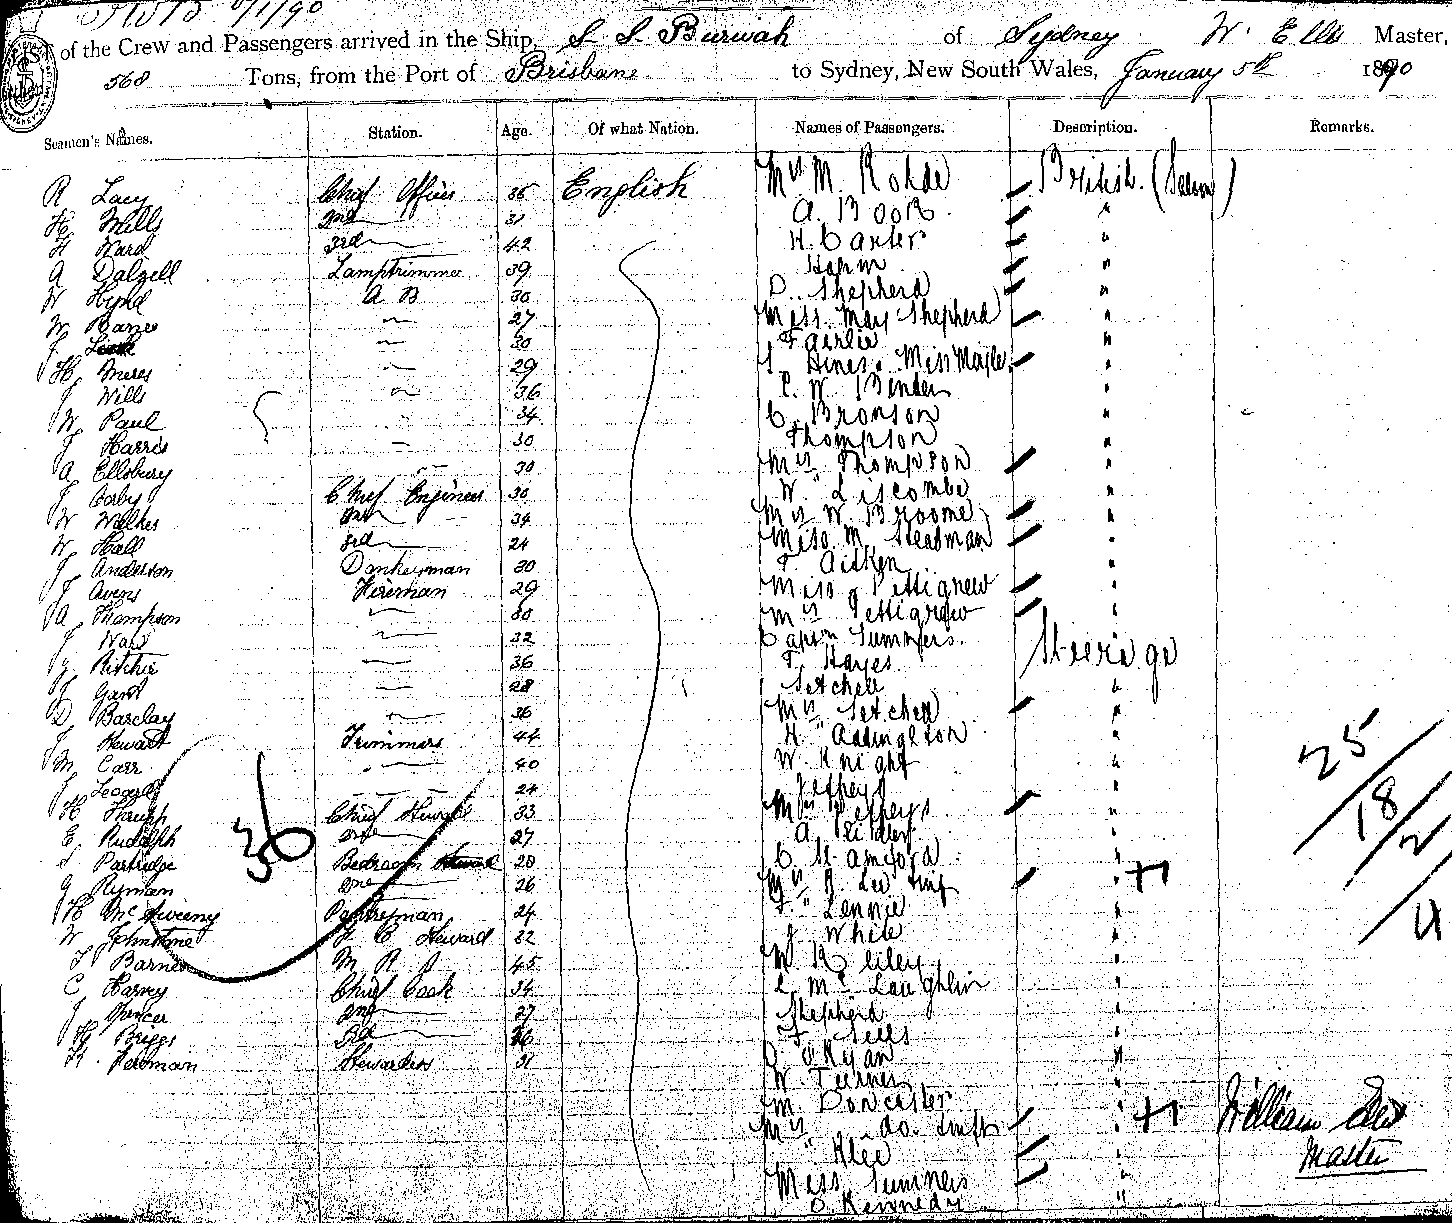 of the Crew and Passengers arrived in the Ship, S. S. Burwah of Sydney W. Ellis Master,
568 Tons, from the Port of Brisbane to Sydney, New South Wales, January 5th 1890
Seamen's Names. Station. Age. Of what Nation. Names of Passengers. Description. Remarks.
R Lacy Chief Officer 35 English Mrs M. Rohde British. (Saloon)
H Mills 2nd 31 A. Book "
H Ward 3rd 42 H. Carter "
A Dalzell Lamptrimmer 39 "
W Hynd A B 30 D. Shepherd "
W 27 Miss May Shepherd "
J 30 Fairlie "
H. Meres 29 Hines. Miss "
J Wills 36 W. Bender "
W. Paul 34 C. Bronson "
J Harris 30 Thompson "
A Ellsbury 30 Mrs Thompson "
J Corby Chief Engineer 30 W. Liscombe "
W Walker 2nd 34 Mrs W Broome "
W. Hall 3rd 24 Miss M. Steadman "
J Anderson Donkeyman 30 F. Aitken "
J Avery Fireman 29 Miss Pettigrew "
A Thompson 30 Mrs Pettigrew "
J Ward 32 Capt'n Summers.
Ritchie 36 F. Hayes Steerage
J Gant 28 Setchell "
D Barclay 36 Mrs Setchell "
J Stewart Trimmers 44 H. Addington "
M Carr 40 W. Knight "
J 24 Jeffreys "
H Chief Steward 33 Mrs Jeffreys "
E. Rudolph 2nd 27 A. "
Partridge Bedroom 28 C. "
G Ryman 26 Mrs R. Lee & inft "
H McSweeny Pantryman 24 F. Lennie "
W Johnstone F C Steward 32 J White "
T Barnes 45 W Reiley "
C Harvey Chief Cook 34 McLaughlin "
J Spencer 2nd 27 Shepherd "
H Briggs 3rd 26 F. Sells "
H. Perman Stewardess 31 O'Ryan "
W. Turner "
M Doncaster "
Mrs do. & infts "
Klee "
Miss Summers "
D. Kennedy "
36
25/18/2/4
William Ellis
Master